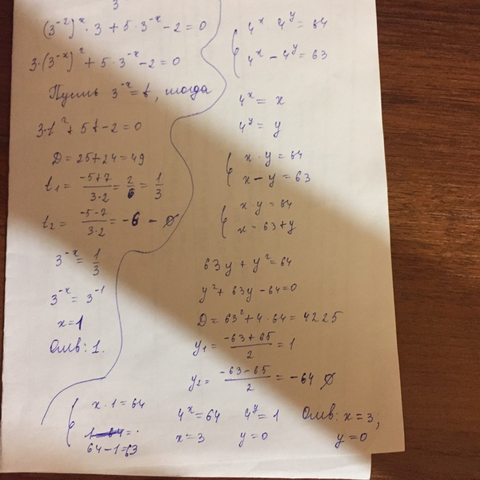 3
(3^-2)^x · 3 + 5 · 3^-x - 2 = 0
3 · (3^-x)^2 + 5 · 3^-x - 2 = 0
Пусть 3^-x = t, тогда
3 · t^2 + 5t - 2 = 0
D = 25 + 24 = 49
t1 = (-5+7)/(3·2) = 2/6 = 1/3
t2 = (-5-7)/(3·2) = -6 - ∅
3^-x = 1/3
3^-x = 3^-1
x = 1
Отв: 1.
{ 4^x 4^y = 64
4^x - 4^y = 63
4^x = x
4^y = y
{ x · y = 64
x - y = 63
{ x · y = 64
x = 63 + y
63y + y^2 = 64
y^2 + 63y - 64 = 0
D = 63^2 + 4 · 64 = 4225
y1 = (-63+65)/2 = 1
y2 = (-63-65)/2 = -64 ∅
{ x · 1 = 64
64 - 1 = 63
4^x = 64 4^y = 1 Отв: x = 3;
x = 3 y = 0 y = 0